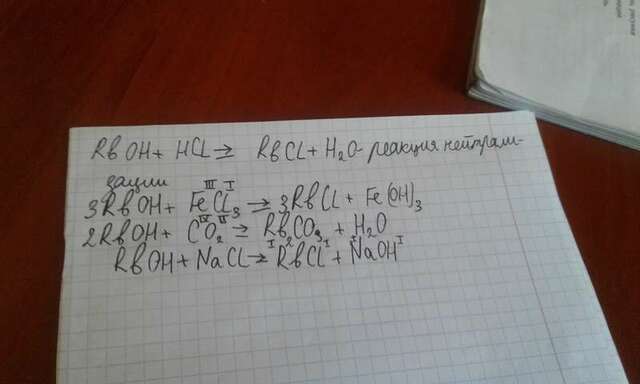 RbOH + HCl => RbCl + H2O - реакция нейтрали-
зации
3RbOH + FeCl3 => 3RbCl + Fe(OH)3
2RbOH + CO2 => Rb2CO3 + H2O
RbOH + NaCl => RbCl + NaOH